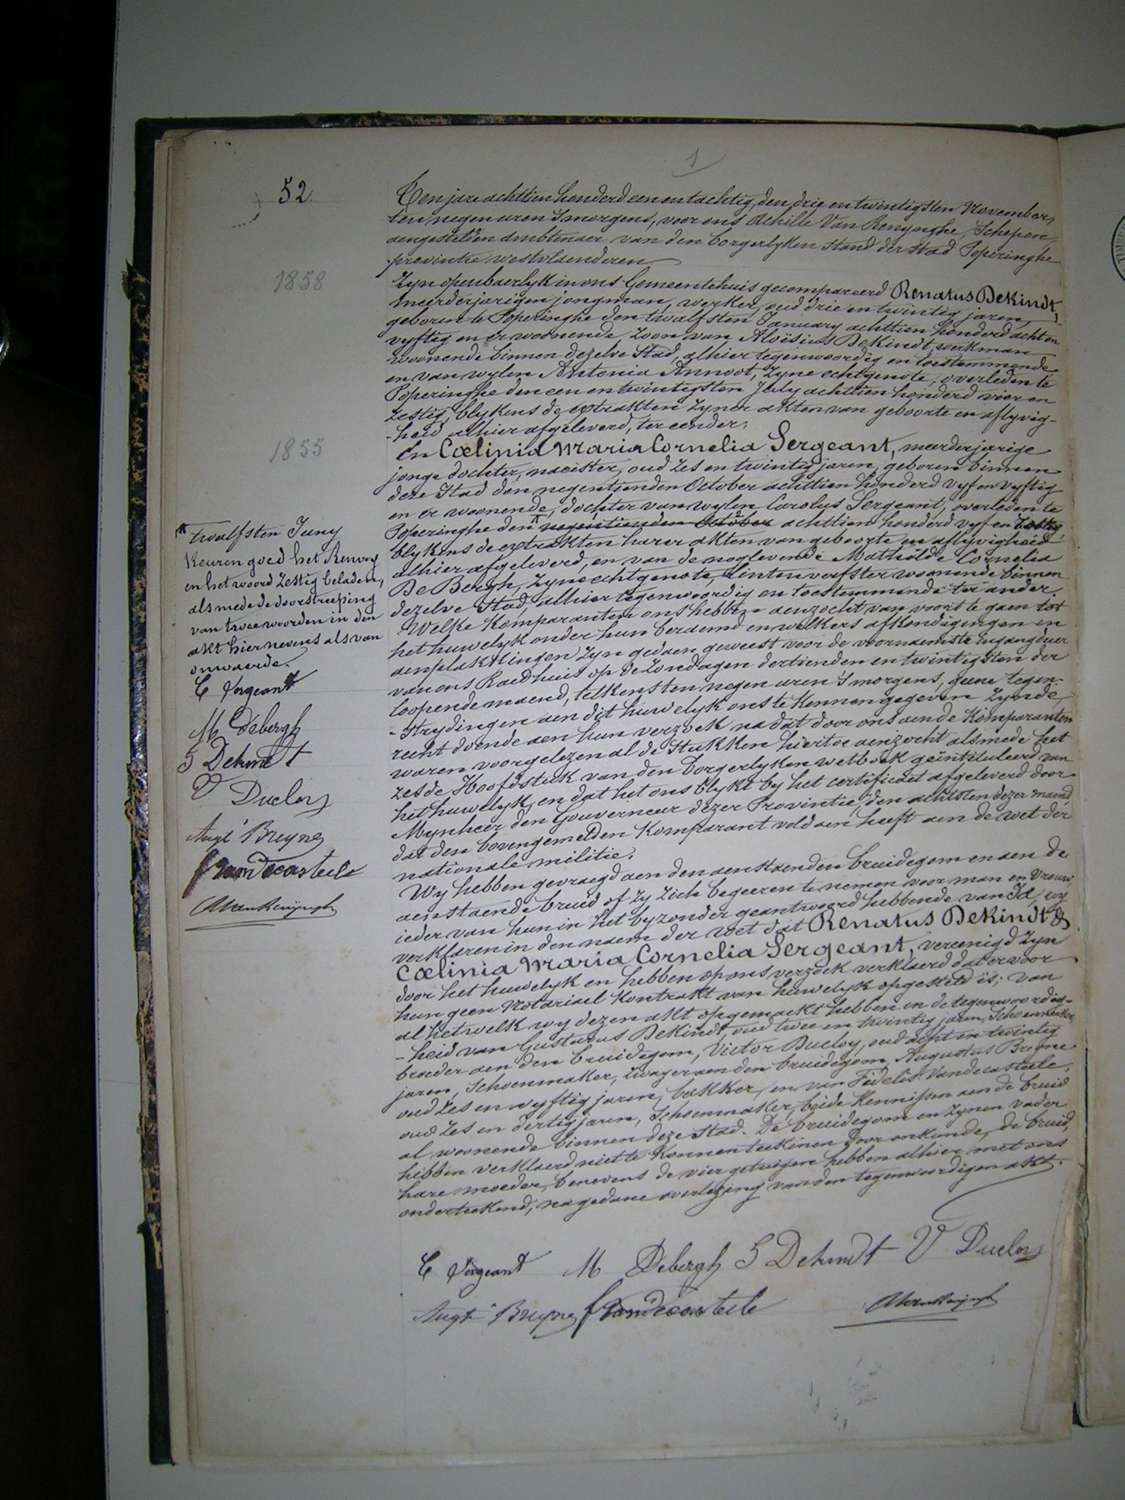 1
52
Ten jare achttien honderd een en tachtig, den drie en twintigsten November,
ten negen uren 's morgens, voor ons Achille Van Renynghe, Schepen,
aengestelden ambtenaer van den borgerlyken stand der Stad Poperinghe
provintie westvlaenderen
1858
Zyn openbaerlyk in ons Gemeentehuis gecompareerd Renatus Dekindt,
meerderjarigen jongman, werker, oud drie en twintig jaren,
geboren te Poperinghe den twalfsten January achttien honderd acht en
vyftig en er woonende, zoon van Aloïsius Dekindt, werkman
woonende binnen dezelve Stad, alhier tegenwoordig en toestemmende
en van wylen Antonia Annoot, zyne echtgenote, overleden te
Poperinghe den een en twintigsten July achttien honderd vier en
zestig, blykens de extrakten zyner akten van geboorte en aflyvig-
-heid alhier afgeleverd, ter eender;
1855
En Cœlinia Maria Cornelia Sergeant, meerderjarige
jonge dochter, naeister, oud zes en twintig jaren, geboren binnen
deze Stad den negentienden October achttien honderd vyf en vyftig
en er woonende, dochter van wylen Carolus Sergeant, overleden te
Poperinghe den negentienden October achttien honderd vyf en zestig,
blykens de extrakten harer akten van geboorte en aflyvigheid
alhier afgeleverd, en van de naglevende Mathilde Cornelia
De Bergh, zyne echtgenote, woonende binnen
dezelve Stad, alhier tegenwoordig en toestemmende ter ander.
Welke komparanten ons hebben aenzocht van voort te gaen tot
het huwelyk onder hun beraemd en welkers afkondigingen en
aenplakkingen zyn gedaen geweest voor de voornaemste ingangdeur
van ons Raedhuis op de zondagen dertienden en twintigsten der
loopende maend, telkens ten negen uren 's morgens, geene tegen-
-strydingen aen dit huwelyk ons te kennen gegeven zynde,
recht doende aen hun verzoek na dat door ons aen de komparanten
waren voorgelezen al de stukken hiertoe aenzocht alsmede het
zesde Hoofdstuk van den borgerlyken wetboek geïntituleerd van
het huwelyk, en dat het ons blykt by het certificaet afgeleverd door
Mynheer den Gouverneur dezer Provintie, den achtsten dezer maend,
dat den bovengemelden komparant voldaen heeft aen de wet der
nationale militie.
Wy hebben gevraegd aen den aenstaenden bruidegom en aen de
aenstaende bruid of zy zich begeeren te nemen voor man en vrouw,
ieder van hun in het byzonder geantwoord hebbende van Ja, wy
verklaren in den naem der wet dat Renatus Dekindt &
Cœlinia Maria Cornelia Sergeant, vereenigd zyn
door het huwelyk en hebben op ons verzoek verklaerd dat er voor
hun geen Notariael kontrakt van huwelyk opgesteld is; van
al hetwelk wy dezen akt opgemaekt hebben in de tegenwoordig-
-heid van Gustavus Dekindt, oud twee en twintig jaren, Schoenmaker,
broeder aen den bruidegom, Victor Ducloy, oud acht en twintig
jaren, Schoenmaker, zwager aen den bruidegom, Augustus Breyne
oud zes en vyftig jaren, bakker, en van Fidelis Vandecasteele,
oud zes en dertig jaren, Schoenmaker, beide kennissen aen de bruid
al woonende binnen deze Stad. De bruidegom en zynen vader
hebben verklaerd niet te konnen teekenen door onkunde, de bruid,
hare moeder, benevens de vier getuigen hebben alhier met ons
onderteekend, na gedane overlezing van den tegenwoordigen akt.
twalfsten Juny
Keuren goed het Renvoy
en het woord zestig beladen,
alsmede de doorstreeping
van twee woorden in den
akt hiernevens als van
onwaerde.
C Sergeant
M Debergh
G Dekindt
V Ducloy
Augt Breyne
F Vandecasteele
AVanRenynghe
C Sergeant M Debergh G Dekindt V Ducloy
Augt Breyne F Vandecasteele AVanRenynghe